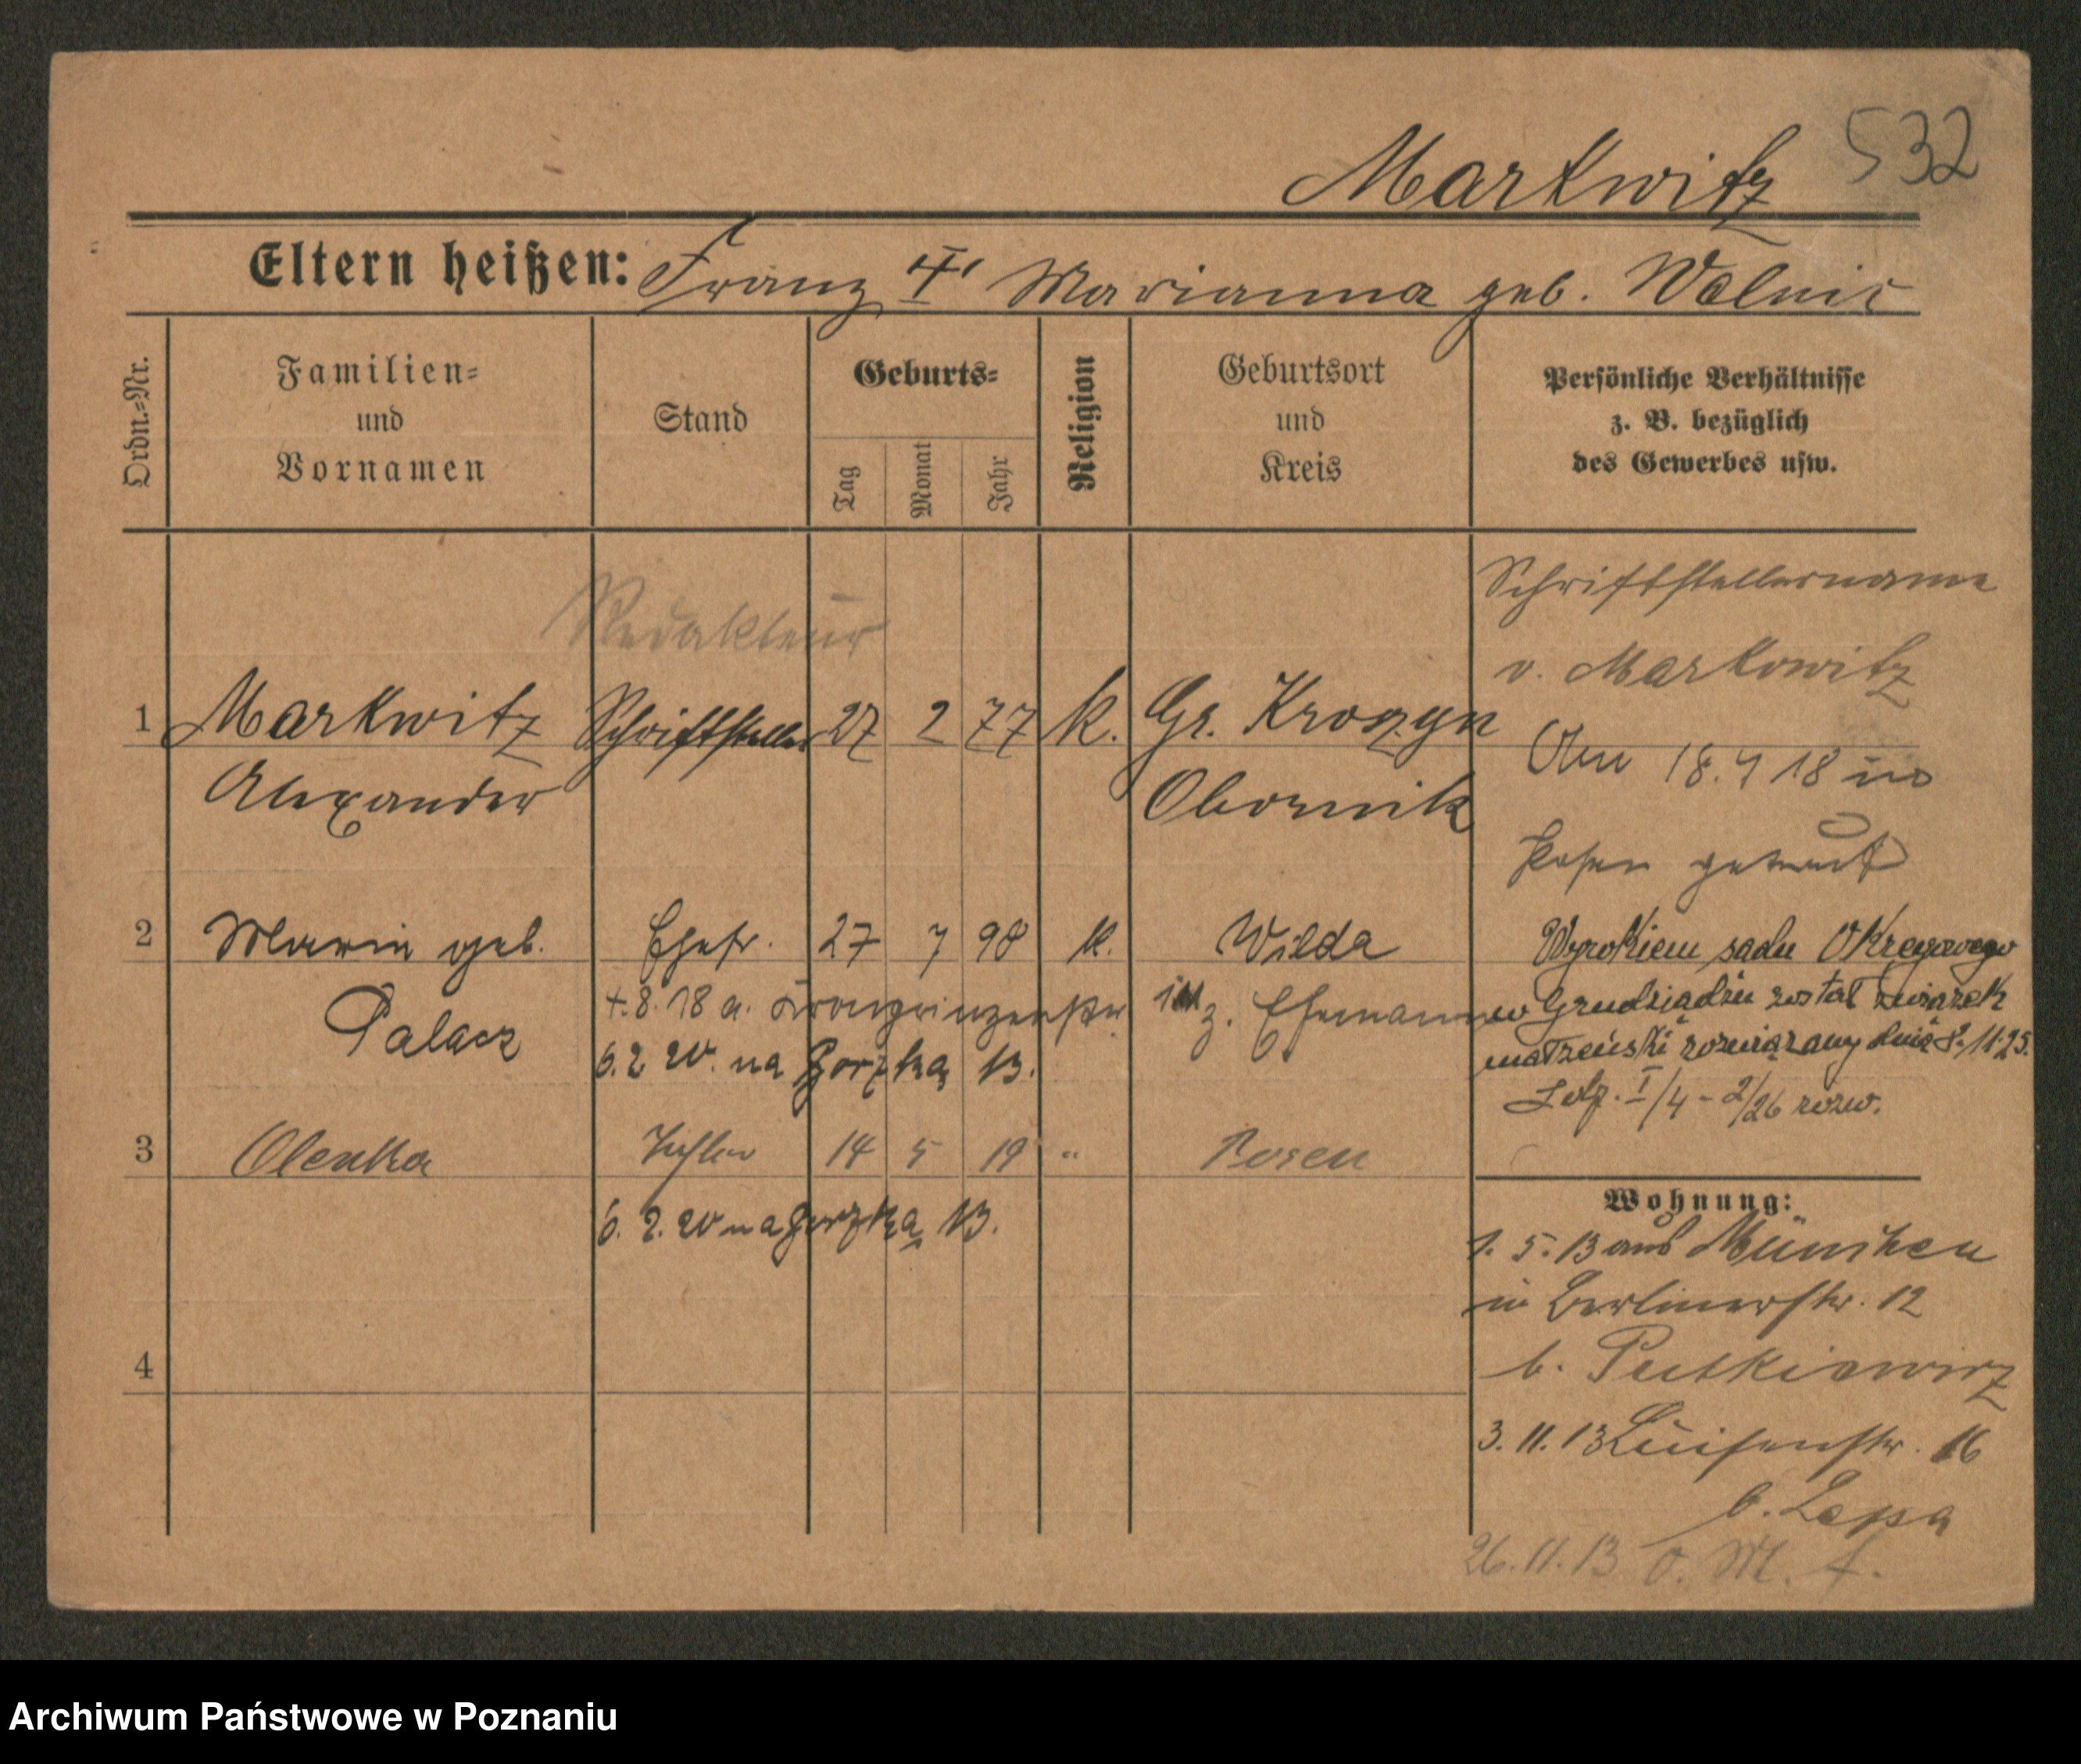 532
Markwitz
Eltern heißen: Franz Marianna geb. Wolnic
Ordn.-Nr.
Familien-
und
Vornamen
Stand
Geburts-
Tag
Monat
Jahr
Religion
Geburtsort
und
Kreis
Persönliche Verhältnisse
z. B. bezüglich
des Gewerbes usw.
Redakteur
1 Markwitz Schriftsteller 27 2 77 k. Gr. Kroszyn
Alexander Obornik
Schriftstellername
v. Markowitz
18. 4 18 in
Posen getraut
2 Maria geb. Ehefr. 27 7 98 k. Wilda
Palacz
+. 8. 18 a. Kronprinzenstr. 111 z. Ehemann
6. 2. 20. na Gorzka 13.
Wyrokiem sadu Okręgowego
w Grudziądzu został związek
małżeński rozwiązany dnia 8. 11. 25.
I/4 - 2/26 rozw.
3 Olenka Tochter 14 5 19 " Posen
6. 2. 20 na Gorzka 13.
4
Wohnung:
1. 5. 13 aus München
in Berlinerstr. 12
b. Putkiewicz
3. 11. 13 Luisenstr. 16
b. Lepa
26. 11. 13 o. M. f.
Archiwum Państwowe w Poznaniu